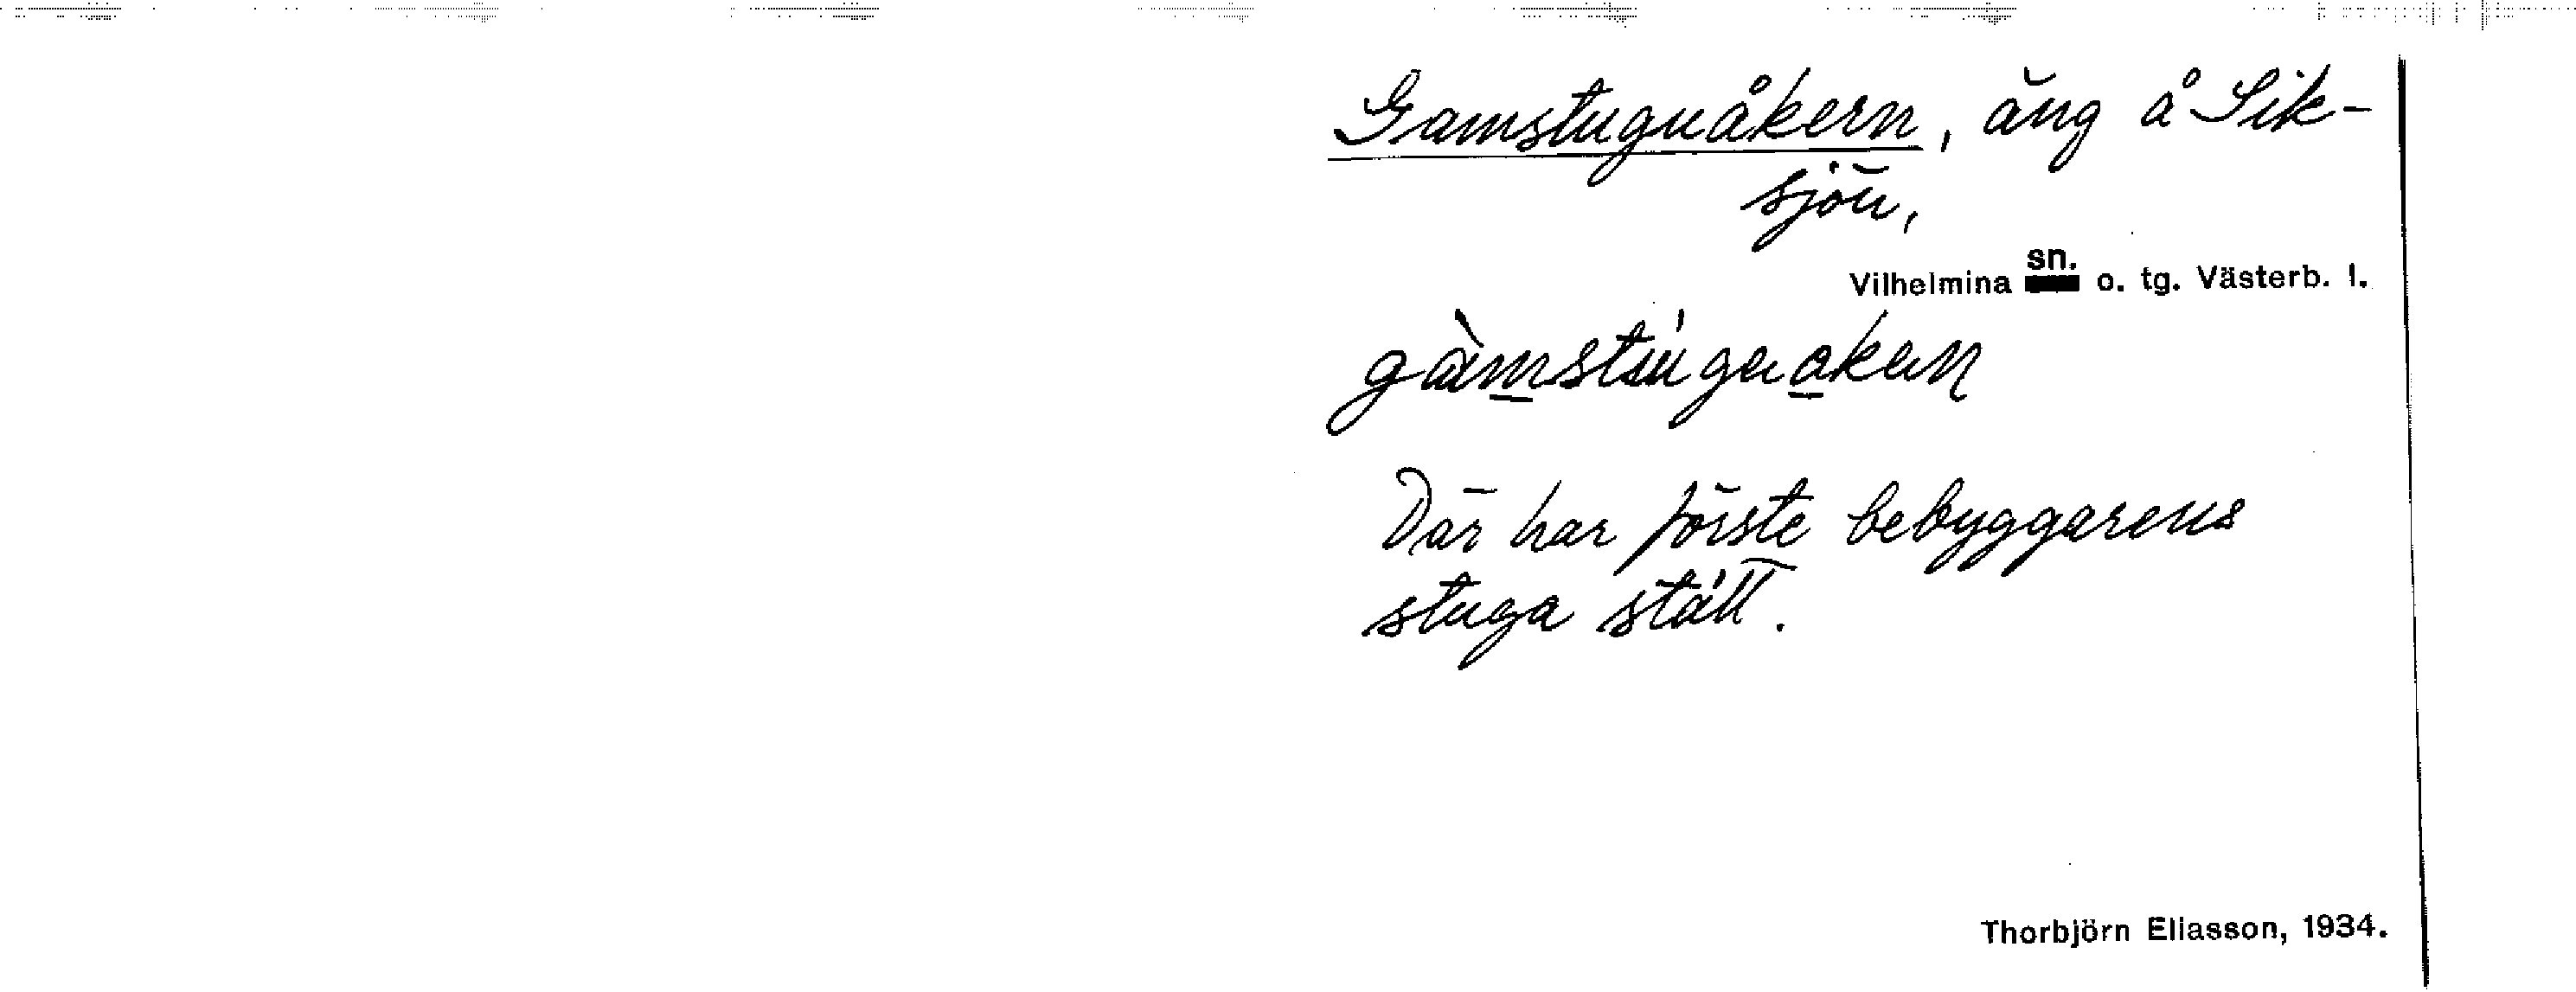 Gamstuguåkern, äng å Sik-
sjön,
Vilhelmina sn. o. tg. Västerb. l.
Där har förste bebyggarens
stuga stått.
Thorbjörn Eliasson, 1934.